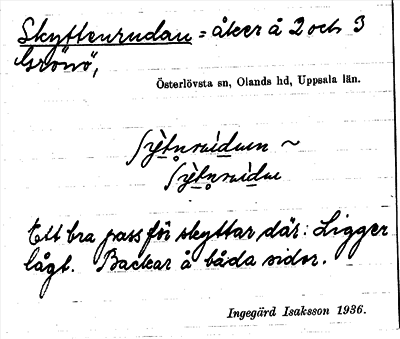 Skyttenrudan = åker å 2 och 3
Grönö,
Österlövsta sn, Olands hd, Uppsala län.
Ett bra pass för skyttar där: Ligger
lågt. Backar å båda sidor.
Ingegärd Isaksson 1936.